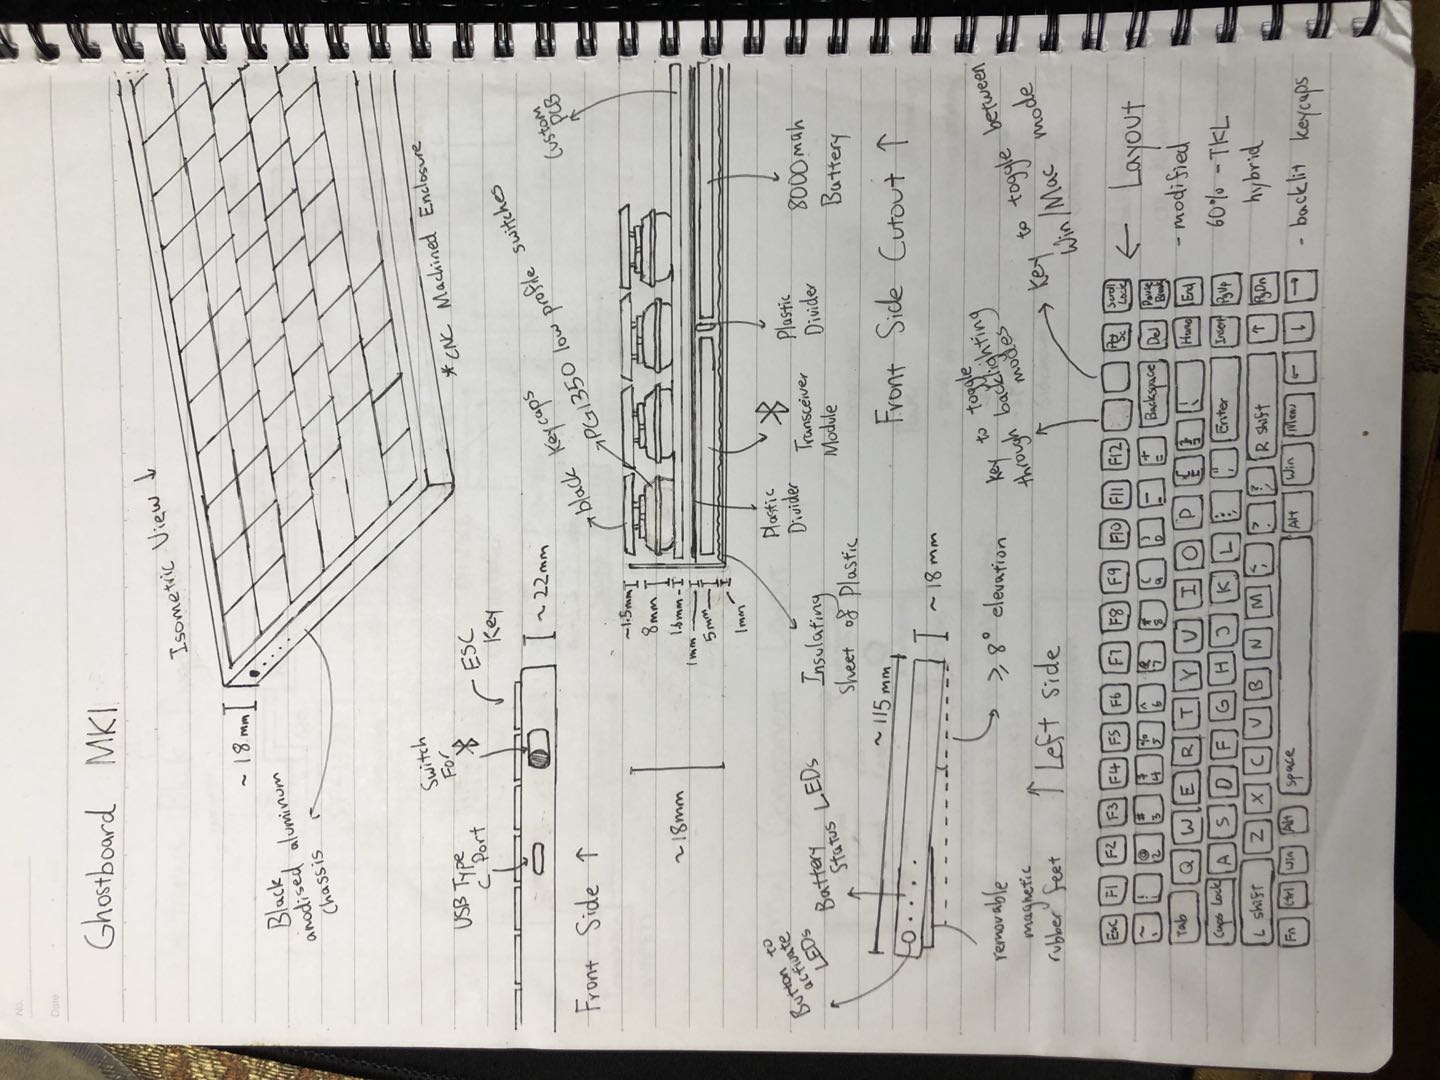 No.
Date
Ghostboard MK1
Isometric View ↓
~ 18 mm
Black
anodised aluminum
chassis
* CNC Machined Enclosure
USB Type
C Port
Switch
For
ESC
Key
~ 22mm
Front Side ↑
black keycaps
PG1350 low profile switches
Custom
PCB
~18mm
~1.5mm
8mm
1.6mm
1mm
5mm
1mm
Insulating
Sheet of Plastic
Plastic
Divider
Transceiver
Module
Plastic
Divider
8000mah
Battery
Front Side Cutout ↑
Button to
activate
LEDs
Battery
Status LEDs
~ 115 mm
~ 18 mm
removable
magnetic
rubber feet
≥ 8° elevation
↑ Left side
key to toggle
through backlighting
modes
key to toggle between
Win/Mac mode
Esc F1 F2 F3 F4 F5 F6 F7 F8 F9 F10 F11 F12 Prt Sc Scroll Lock
~ ! @ 2 # 3 $ 4 % 5 ^ 6 & 7 * 8 ( 9 ) 0 - + = Backspace Del Pause Break
Tab Q W E R T Y U I O P { [ } ] \ Home End
Caps Lock A S D F G H J K L : ; " ' Enter Insert PgUp
L shift Z X C V B N M < , > . ? / R shift ↑ PgDn
Fn Ctrl Win Alt space Alt Win Menu ← ↓ →
← Layout
- modified
60% - TKL
hybrid
- backlit keycaps